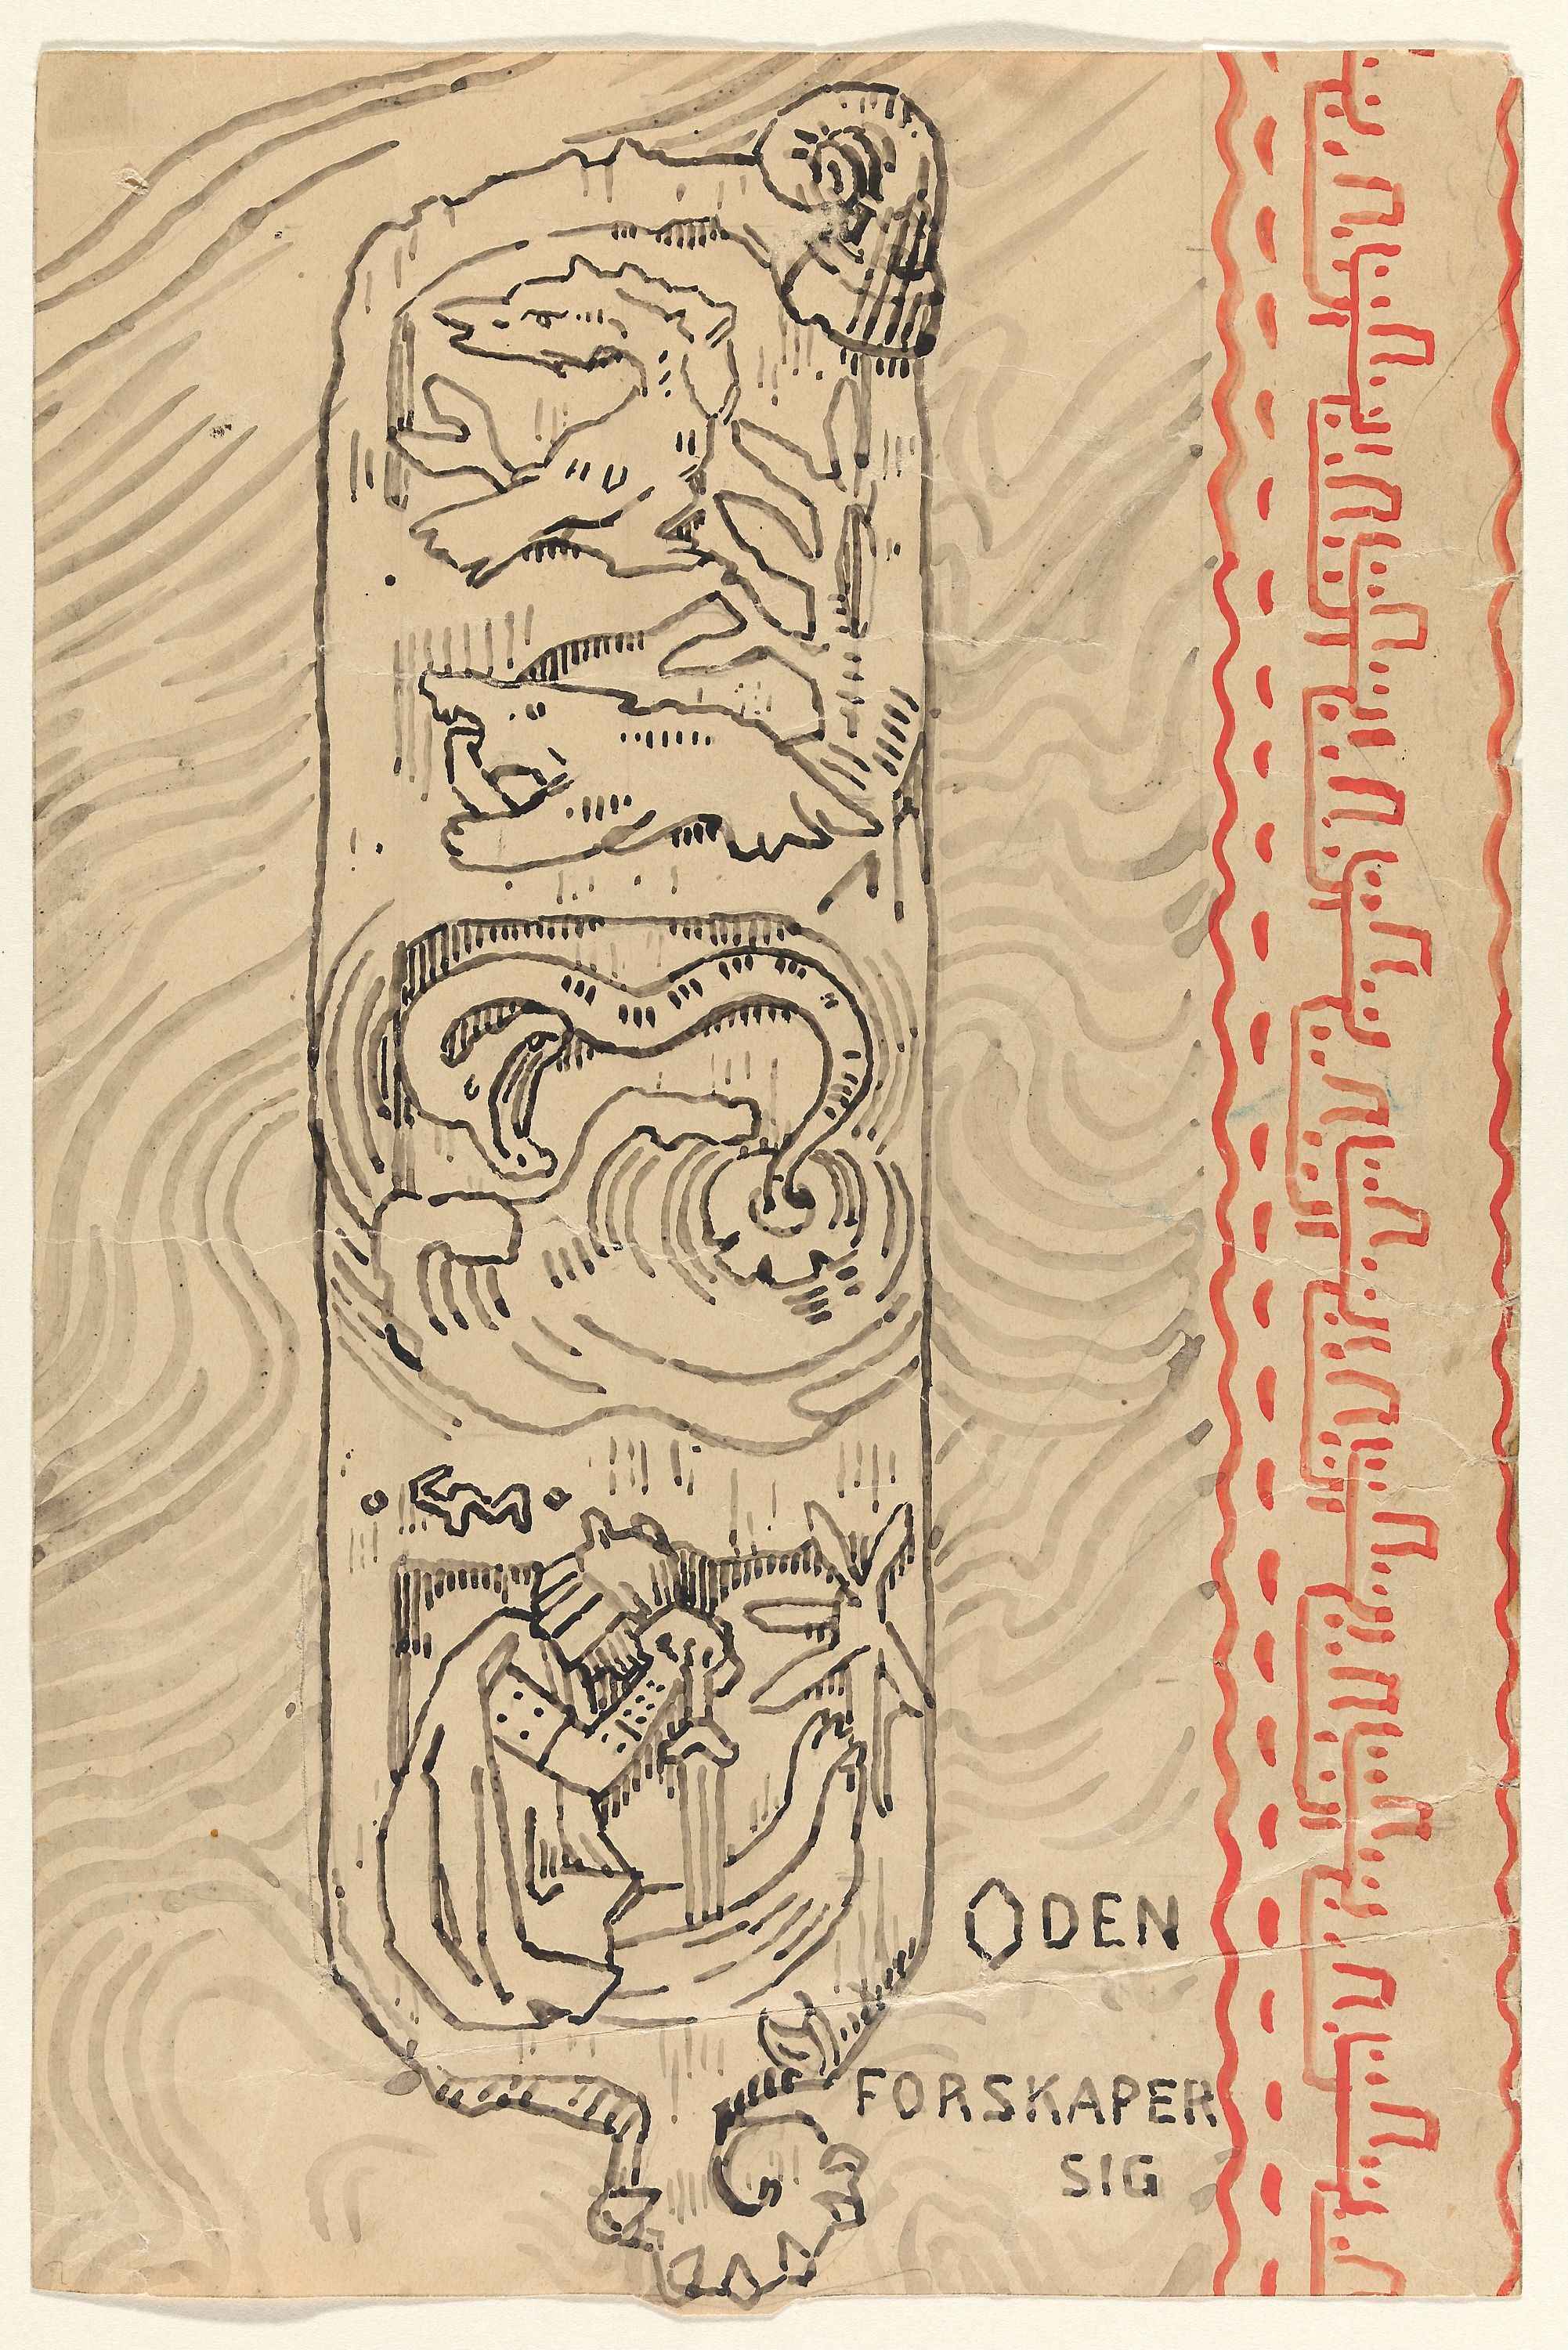 ODEN
FORSKAPER
SIG